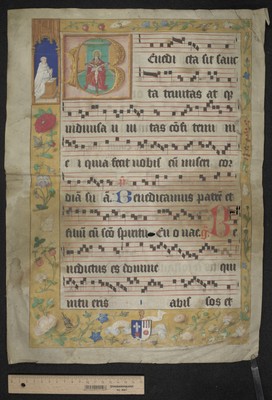 Benedi cta sit sanc
ta trinitas at q
indiuisa u ni tas cōfi temi ni
e i quia fecit nobis cū miseri cor
diā su ā. Benedicamus patrē et
filiū cū scō spiritu
nedictus es domine qui
intu eris abis sos et